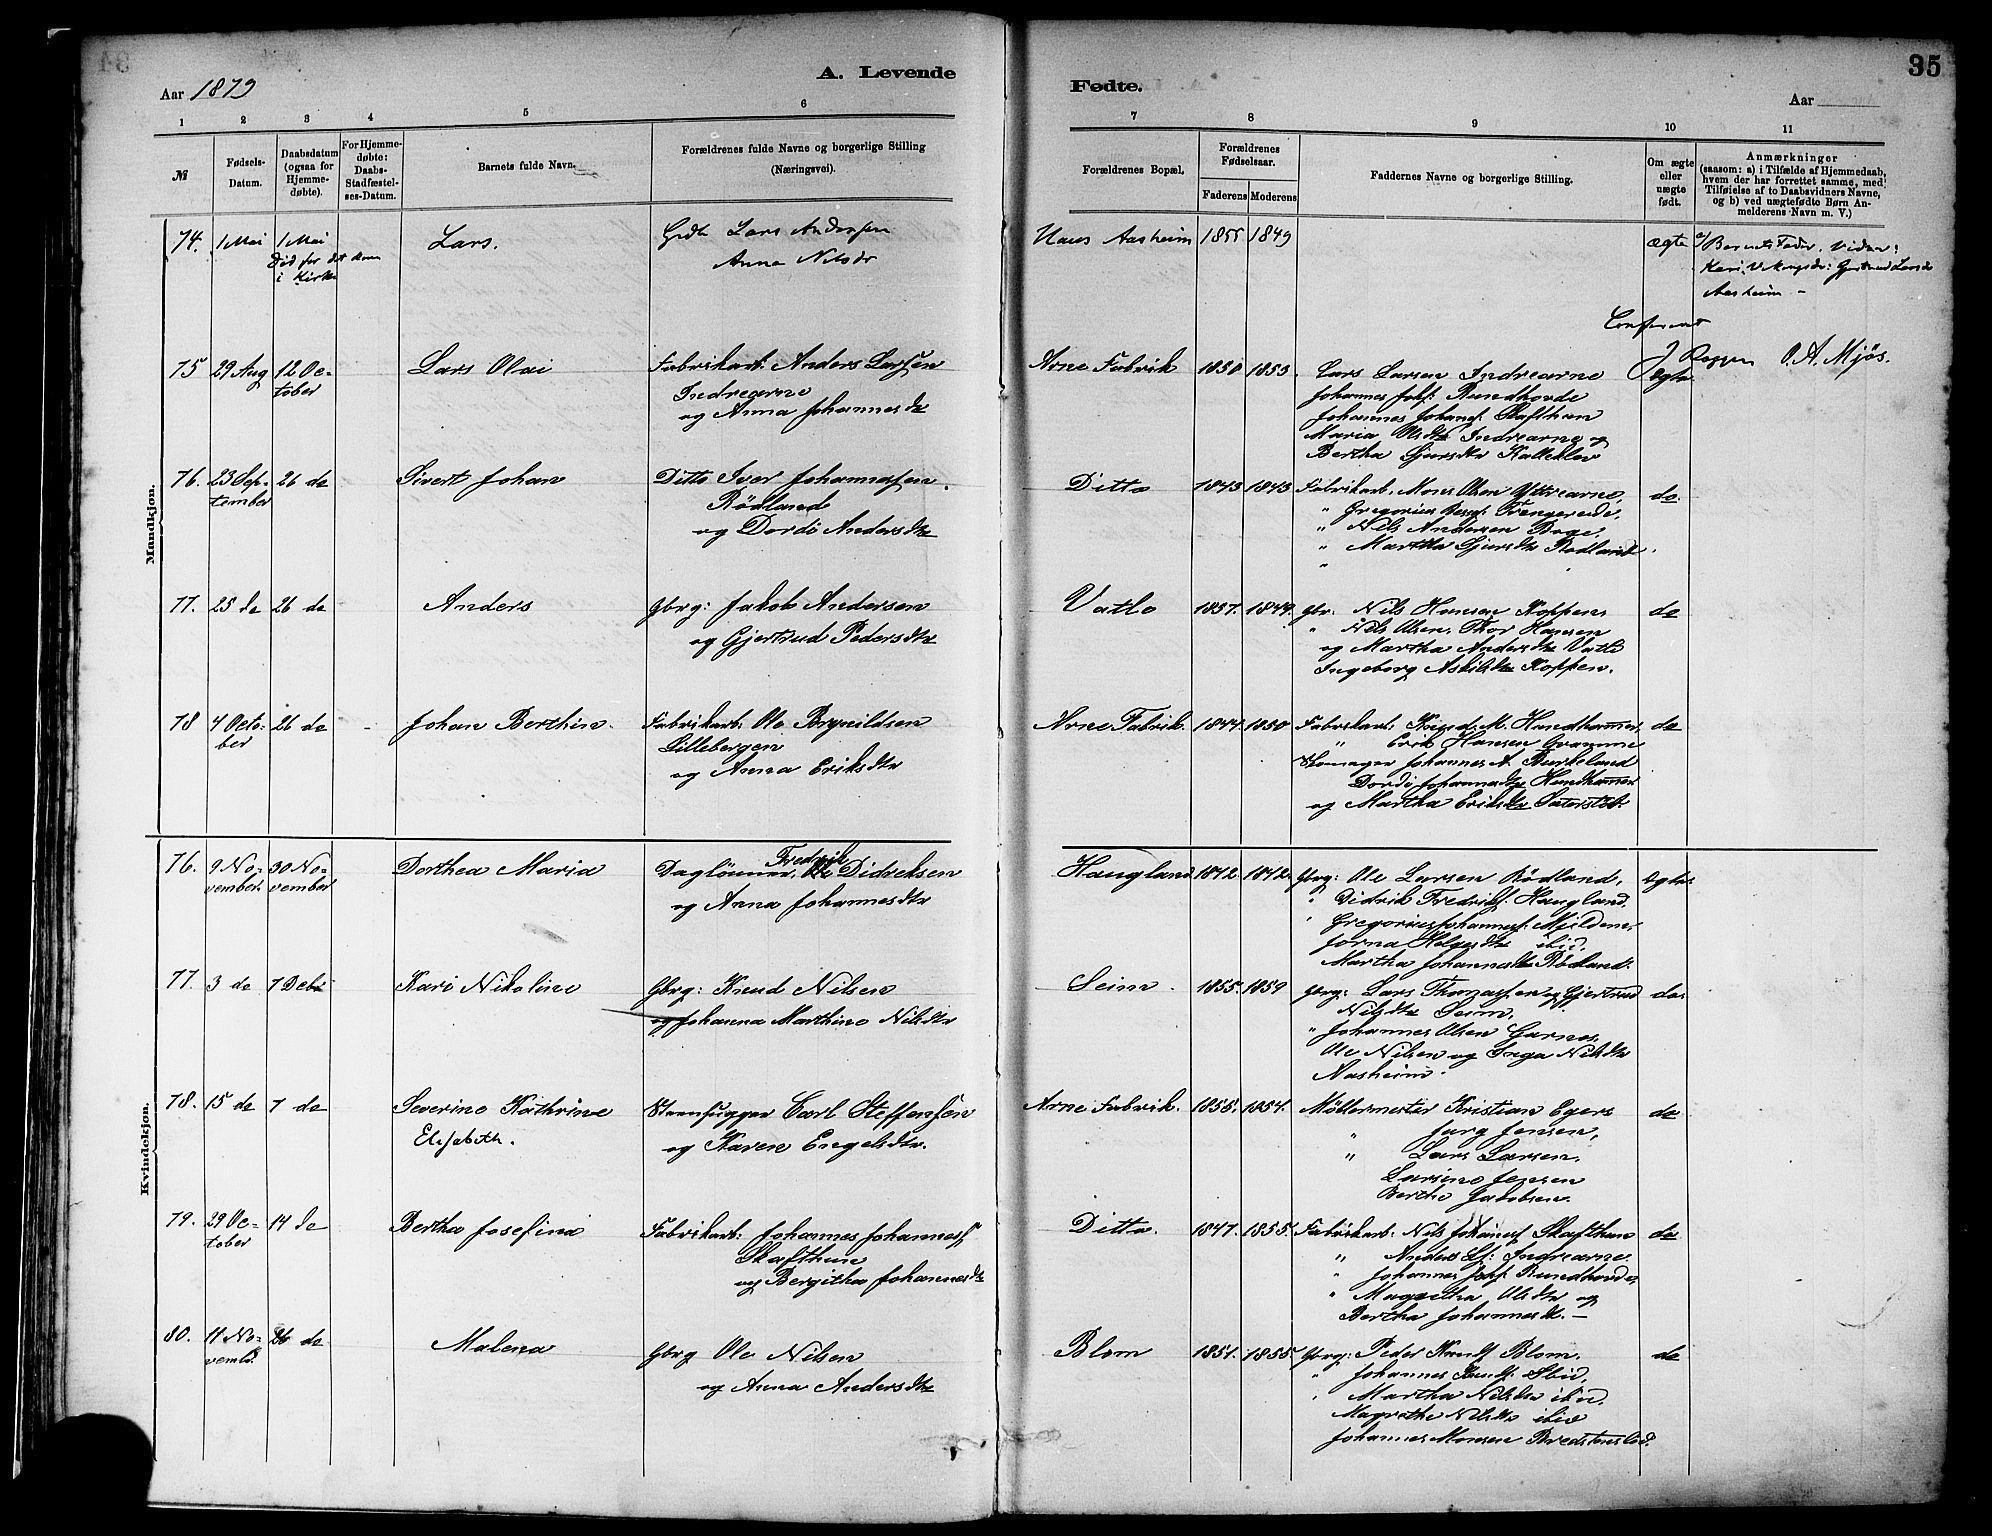 35
Aar 1879
A. Levende
Fødte.
Aar
1 2 3 4 5 6 7 8 9 10 11
№
Fødsels-
Datum.
Daabsdatum
(ogsaa for
Hjemme-
døbte).
For Hjemme-
døbte:
Daabs-
Stadfæstel-
ses-Datum.
Barnets fulde Navn.
Forældrenes fulde Navne og borgerlige Stilling
(Næringsvei).
Forældrenes Bopæl,
Forældrenes
Fødselsaar.
Faderens Moderens
Faddernes Navne og borgerlige Stilling.
Om ægte
eller
uægte
født.
Anmærkninger
(saasom: a) i Tilfælde af Hjemmedaab,
hvem der har forrettet samme, med
Tilføielse af to Daabsvidners Navne,
og b) ved uægtefødte Børn An-
melderens Navn m. V.)
Mandkjøn.
74. 1 Mai 1 Mai
Död før det kom
i Kirke
Lars.
Lars Andersen
Anna Nilsdr
Haus Aasheim 1855 1849
ægte
a/ Barnets Fader. Vidner:
Kari Vikingsdr: Gjertrud Larsdr
Aasheim –
Confereret
O. A. Mjøs.
75 29 Aug 12 Oc-
tober
Lars Olai
Fabrikarb: Anders Larsen
Indrearne
og Anna Johannesdtr
Arne Fabrik 1850 1853.
Lars Larsen Indrearne
Johannes Johs: Rundhovde
Johannes Johans: Skafthun
Maria Olsdtr Indrearne og
Bertha Gjursdtr Kalleklev
Ægte
76. 23 Sep-
tember
26 do
Sivert Johan
Ditto Iver Johannessen
Rödland
og Dordö Andersdtr
Ditto 1843 1843
Fabrikarb. Mons Olsen Yttrearne,
" Gregorius Trengereide,
" Nils Andersen Boge,
" Martha Gjursdtr Rödland.
"
do
77. 25 do 26 do
Anders
Gbrg: Jakob Andersen
og Gjertrud Pedersdtr
Vatle 1837. 1844.
Gbr. Nils Hansen Koppen,
" Nils Olsen, Thor Hansen
og Martha Andersdtr Vatle
Ingeborg Askildsdtr Koppen.
do
78 4 Octo-
ber
26 do -
Johan Berthin.
Fabrikarb: Ole Brynildsen
Lillebergen
og Anna Eriksdtr
Arne Fabrik. 1844. 1850
Fabrikarb: Knud M. Hundhammer,
" Erik Hansen Gramme
Johannes A. Burkeland
Dordö Johannesdtr Hundhammer
og Martha Eriksdtr Säterstöl.
do
Kvindekjøn.
76. 9 No-
vember.
30 No-
vember
Dorthea Maria
Daglönner, Fredrik Didriksen
og Anna Johannesdtr
Haugland 1842 1842.
Gbrg: Ole Larsen Rödland,
" Didrik Fredriks: Haugland,
' Gregorius Johannes: Mjeldene,
Jorna Helgesdtr ibid,
Martha Johannesdtr Rödland.
Ægte.
77. 3 do 7 Decb
Kari Nikoline
Gbrg: Knud Nilsen
og Johanna Marthine Nilsdtr
Seim. 1855. 1859
Gbrg: Lars Thomassen og Gjertrud
Nilsdtr Seim,
" Johannes Olsen Garnes,
Ole Nilsen og Inga Nilsdtr
Aasheim.
do.
78. 15 do 7 do
Severine Kathrine
Elisabeth.
Steenhugger Carl Steffensen
og Karen Engelsdtr.
Arne Fabrik. 1855. 1854.
Möllermester Kristian Egers
" Jurg Jensen,
" Lars Larsen.
Larsine Jensen
Berthe Jakobsen.
do
79. 29 Oc-
tober
14 do
Bertha Josefina
Fabrikarb: Johannes Johannes:
Skafthun
og Bergitha Johannesdtr
Ditto. 1847. 1855.
Fabrikarb: Nils Johans: Skafthun
" Anders Ls: Indrearne
" Johannes Johs: Rundhovde,
" Magretha Olsdtr og
Bertha Johannesdtr. –
do
80. 11 No-
vembr.
26 do
Malena
Gbrg Ole Nilsen
og Anna Andersdtr
Blom 1851. 1855.
Gbrg: Peder Knuds: Blom,
" Johannes Knuds: Ibid,
' Martha Nilsdtr ibid,
Magrethe Nilsdtr ibid
Johannes Monsen Bredstenslid.
do